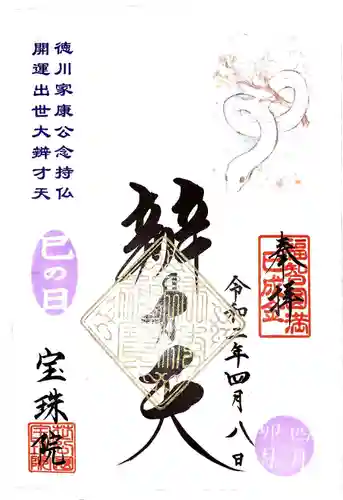 奉拝
福智円満
令和二年四月八日
四月
卯月
辨才天
徳川家康公念持仏
開運出世大辨才天
巳の日
宝珠院